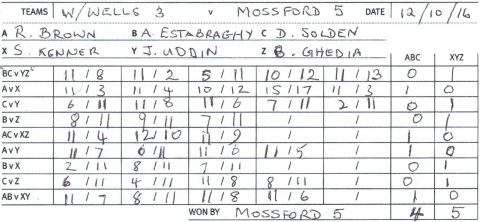 TEAMS W/WELLS 3 v MOSSFORD 5 DATE 12/10/16
A R. BROWN B A. ESTABRAGHY C D. JOLDEN
X S. KENNER Y J. UDDIN Z B. GHEDIA ABC XYZ
BCvYZ 11/8 11/2 5/11 10/12 11/13 0 1
AvX 11/3 11/4 10/12 15/17 11/3 1 0
CvY 6/11 11/8 11/6 7/11 2/11 0 1
BvZ 8/11 9/11 7/11 / / 0 1
ACvXZ 11/4 12/10 11/9 / / 1 0
AvY 11/7 6/11 11/6 11/5 / 1 0
BvX 2/11 8/11 7/11 / / 0 1
CvZ 6/11 4/11 11/8 8/11 / 0 1
ABvXY 11/7 8/11 11/8 11/6 / 1 0
WON BY MOSSFORD 5 4 5